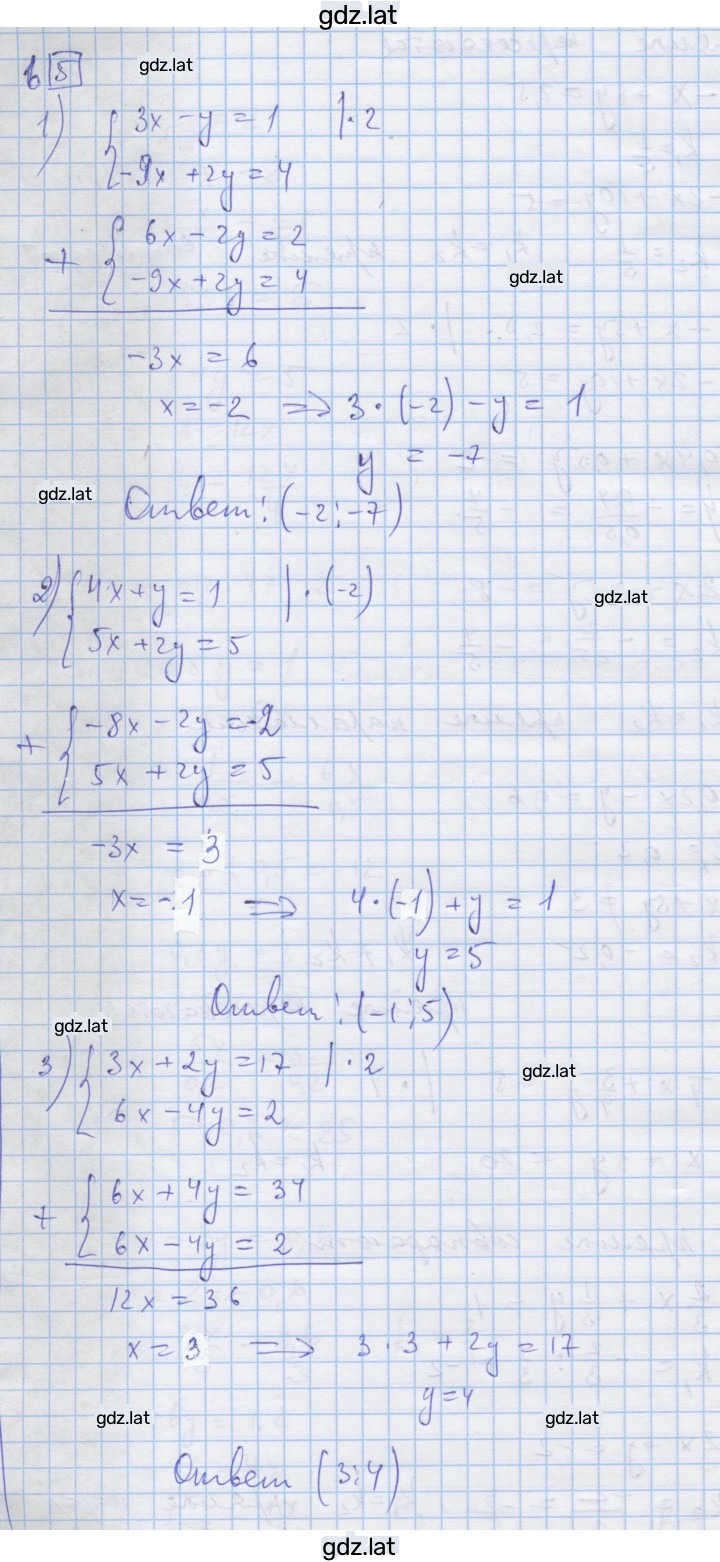 gdz.lat
в 5
gdz.lat
1) { 3x - y = 1 | · 2
-9x + 2y = 4
+ { 6x - 2y = 2
-9x + 2y = 4
gdz.lat
-3x = 6
x = -2 => 3 · (-2) - y = 1
y = -7
gdz.lat
Ответ: (-2; -7)
2) { 4x + y = 1 | · (-2)
gdz.lat
5x + 2y = 5
+ { -8x - 2y = -2
5x + 2y = 5
-3x = 3
x = -1 => 4 · (-1) + y = 1
y = 5
Ответ: (-1; 5)
gdz.lat
3) { 3x + 2y = 17 | · 2
gdz.lat
6x - 4y = 2
+ { 6x + 4y = 34
6x - 4y = 2
12x = 36
x = 3 => 3 · 3 + 2y = 17
y = 4
gdz.lat gdz.lat
Ответ (3; 4)
gdz.lat